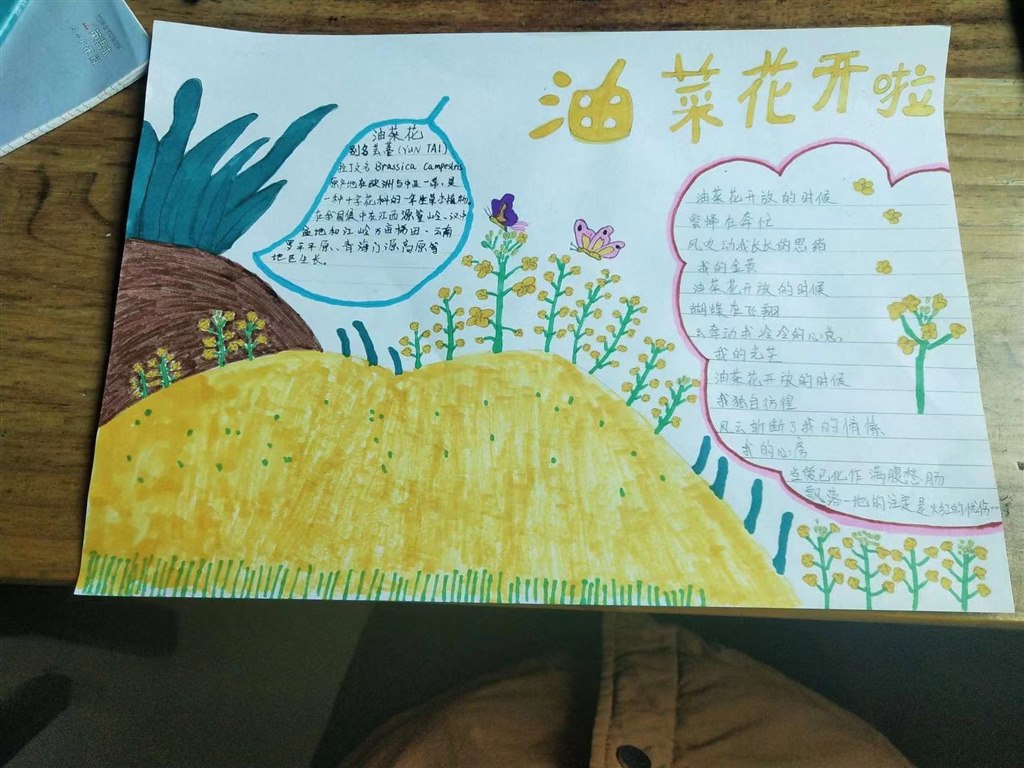 油菜花开啦
油菜花
别名芸薹(YUN TAI)
拉丁文名 Brassica Campestris
原产地在欧洲与中亚一带,是
一种十字花科的一年生草本植物,
在我国集中在江西婺源篁岭、汉中
盆地和江岭万亩梯田、云南
罗平平原、青海门源高原等
地区生长。
油菜花开放的时候
蜜蜂在奔忙
风吹动我长长的思绪
我的金黄
油菜花开放的时候
蝴蝶在飞翔
云牵动我冷冷的心意,
我的光芒
油菜花开放的时候
我独自彷徨
风云斩断了我的情愫
我的心房
当黄已化作满腹愁肠
飘落一地的注定是火红的忧伤……